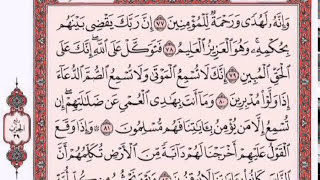 وَإِنَّهُۥ لَهُدًى وَرَحْمَةٌ لِّلْمُؤْمِنِينَ ٧٧ إِنَّ رَبَّكَ يَقْضِى بَيْنَهُم
بِحُكْمِهِۦ وَهُوَ ٱلْعَزِيزُ ٱلْعَلِيمُ ٧٨ فَتَوَكَّلْ عَلَى ٱللَّهِ إِنَّكَ عَلَى
ٱلْحَقِّ ٱلْمُبِينِ ٧٩ إِنَّكَ لَا تُسْمِعُ ٱلْمَوْتَىٰ وَلَا تُسْمِعُ ٱلصُّمَّ ٱلدُّعَآءَ
إِذَا وَلَّوْا۟ مُدْبِرِينَ ٨٠ وَمَآ أَنتَ بِهَٰدِى ٱلْعُمْىِ عَن ضَلَٰلَتِهِمْ إِن
تُسْمِعُ إِلَّا مَن يُؤْمِنُ بِـَٔايَٰتِنَا فَهُم مُّسْلِمُونَ ٨١ وَإِذَا وَقَعَ
ٱلْقَوْلُ عَلَيْهِمْ أَخْرَجْنَا لَهُمْ دَآبَّةً مِّنَ ٱلْأَرْضِ تُكَلِّمُهُمْ أَنَّ